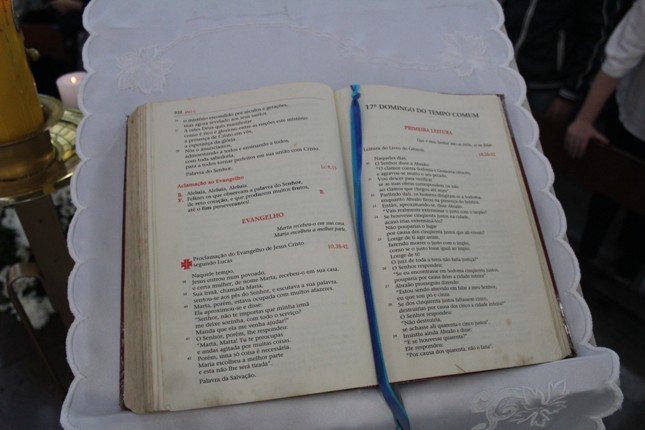 o mistério escondido por séculos e gerações,
mas agora revelado aos seus santos.
A estes Deus quis manifestar
como é rico e glorioso entre as nações este mistério:
a presença de Cristo em vós,
a esperança da glória.
Nós o anunciamos,
admoestando a todos e ensinando a todos,
com toda sabedoria,
para a todos tornar perfeitos em sua união com Cristo.
Palavra do Senhor.
Aclamação ao Evangelho
R. Aleluia, Aleluia, Aleluia.
V. Felizes os que observam a palavra do Senhor,
de reto coração, e que produzem muitos frutos,
até o fim perseverantes! R.
EVANGELHO
Marta recebeu-o em sua casa.
Maria escolheu a melhor parte.
Proclamação do Evangelho de Jesus Cristo
segundo Lucas 10,38-42
Naquele tempo,
38 Jesus entrou num povoado,
e certa mulher, de nome Marta, recebeu-o em sua casa.
39 Sua irmã, chamada Maria,
sentou-se aos pés do Senhor, e escutava a sua palavra.
40 Marta, porém, estava ocupada com muitos afazeres.
Ela aproximou-se e disse:
"Senhor, não te importas que minha irmã
me deixe sozinha, com todo o serviço?
Manda que ela me venha ajudar!"
41 O Senhor, porém, lhe respondeu:
"Marta, Marta! Tu te preocupas
e andas agitada por muitas coisas.
42 Porém, uma só coisa é necessária.
Maria escolheu a melhor parte
e esta não lhe será tirada".
Palavra da Salvação.
17º DOMINGO DO TEMPO COMUM
PRIMEIRA LEITURA
Leitura do Livro do Gênesis 18,20-32
Naqueles dias,
20 O Senhor disse a Abraão:
"O clamor contra Sodoma e Gomorra cresceu,
e agravou-se muito o seu pecado.
21 Vou descer para verificar
se as suas obras correspondem ou não
ao clamor que chegou até mim".
22 Partindo dali, os homens dirigiram-se a Sodoma,
enquanto Abraão ficou na presença do Senhor.
23 Então, aproximando-se, disse Abraão:
"Vais realmente exterminar o justo com o ímpio?
24 Se houvesse cinquenta justos na cidade,
acaso irias exterminá-los?
Não pouparias o lugar
por causa dos cinquenta justos que ali vivem?
25 Longe de ti agir assim,
fazendo morrer o justo com o ímpio,
como se o justo fosse igual ao ímpio.
Longe de ti!
O juiz de toda a terra não faria justiça?"
26 O Senhor respondeu:
"Se eu encontrasse em Sodoma cinquenta justos,
pouparia por causa deles a cidade inteira".
27 Abraão prosseguiu dizendo:
"Estou sendo atrevido em falar a meu Senhor,
eu que sou pó e cinza.
28 Se dos cinquenta justos faltassem cinco,
destruirias por causa dos cinco a cidade inteira?"
O Senhor respondeu:
"Não destruiria,
se achasse ali quarenta e cinco justos".
29 Insistiu ainda Abraão e disse:
"E se houvesse quarenta?"
Ele respondeu:
"Por causa dos quarenta, não o faria".